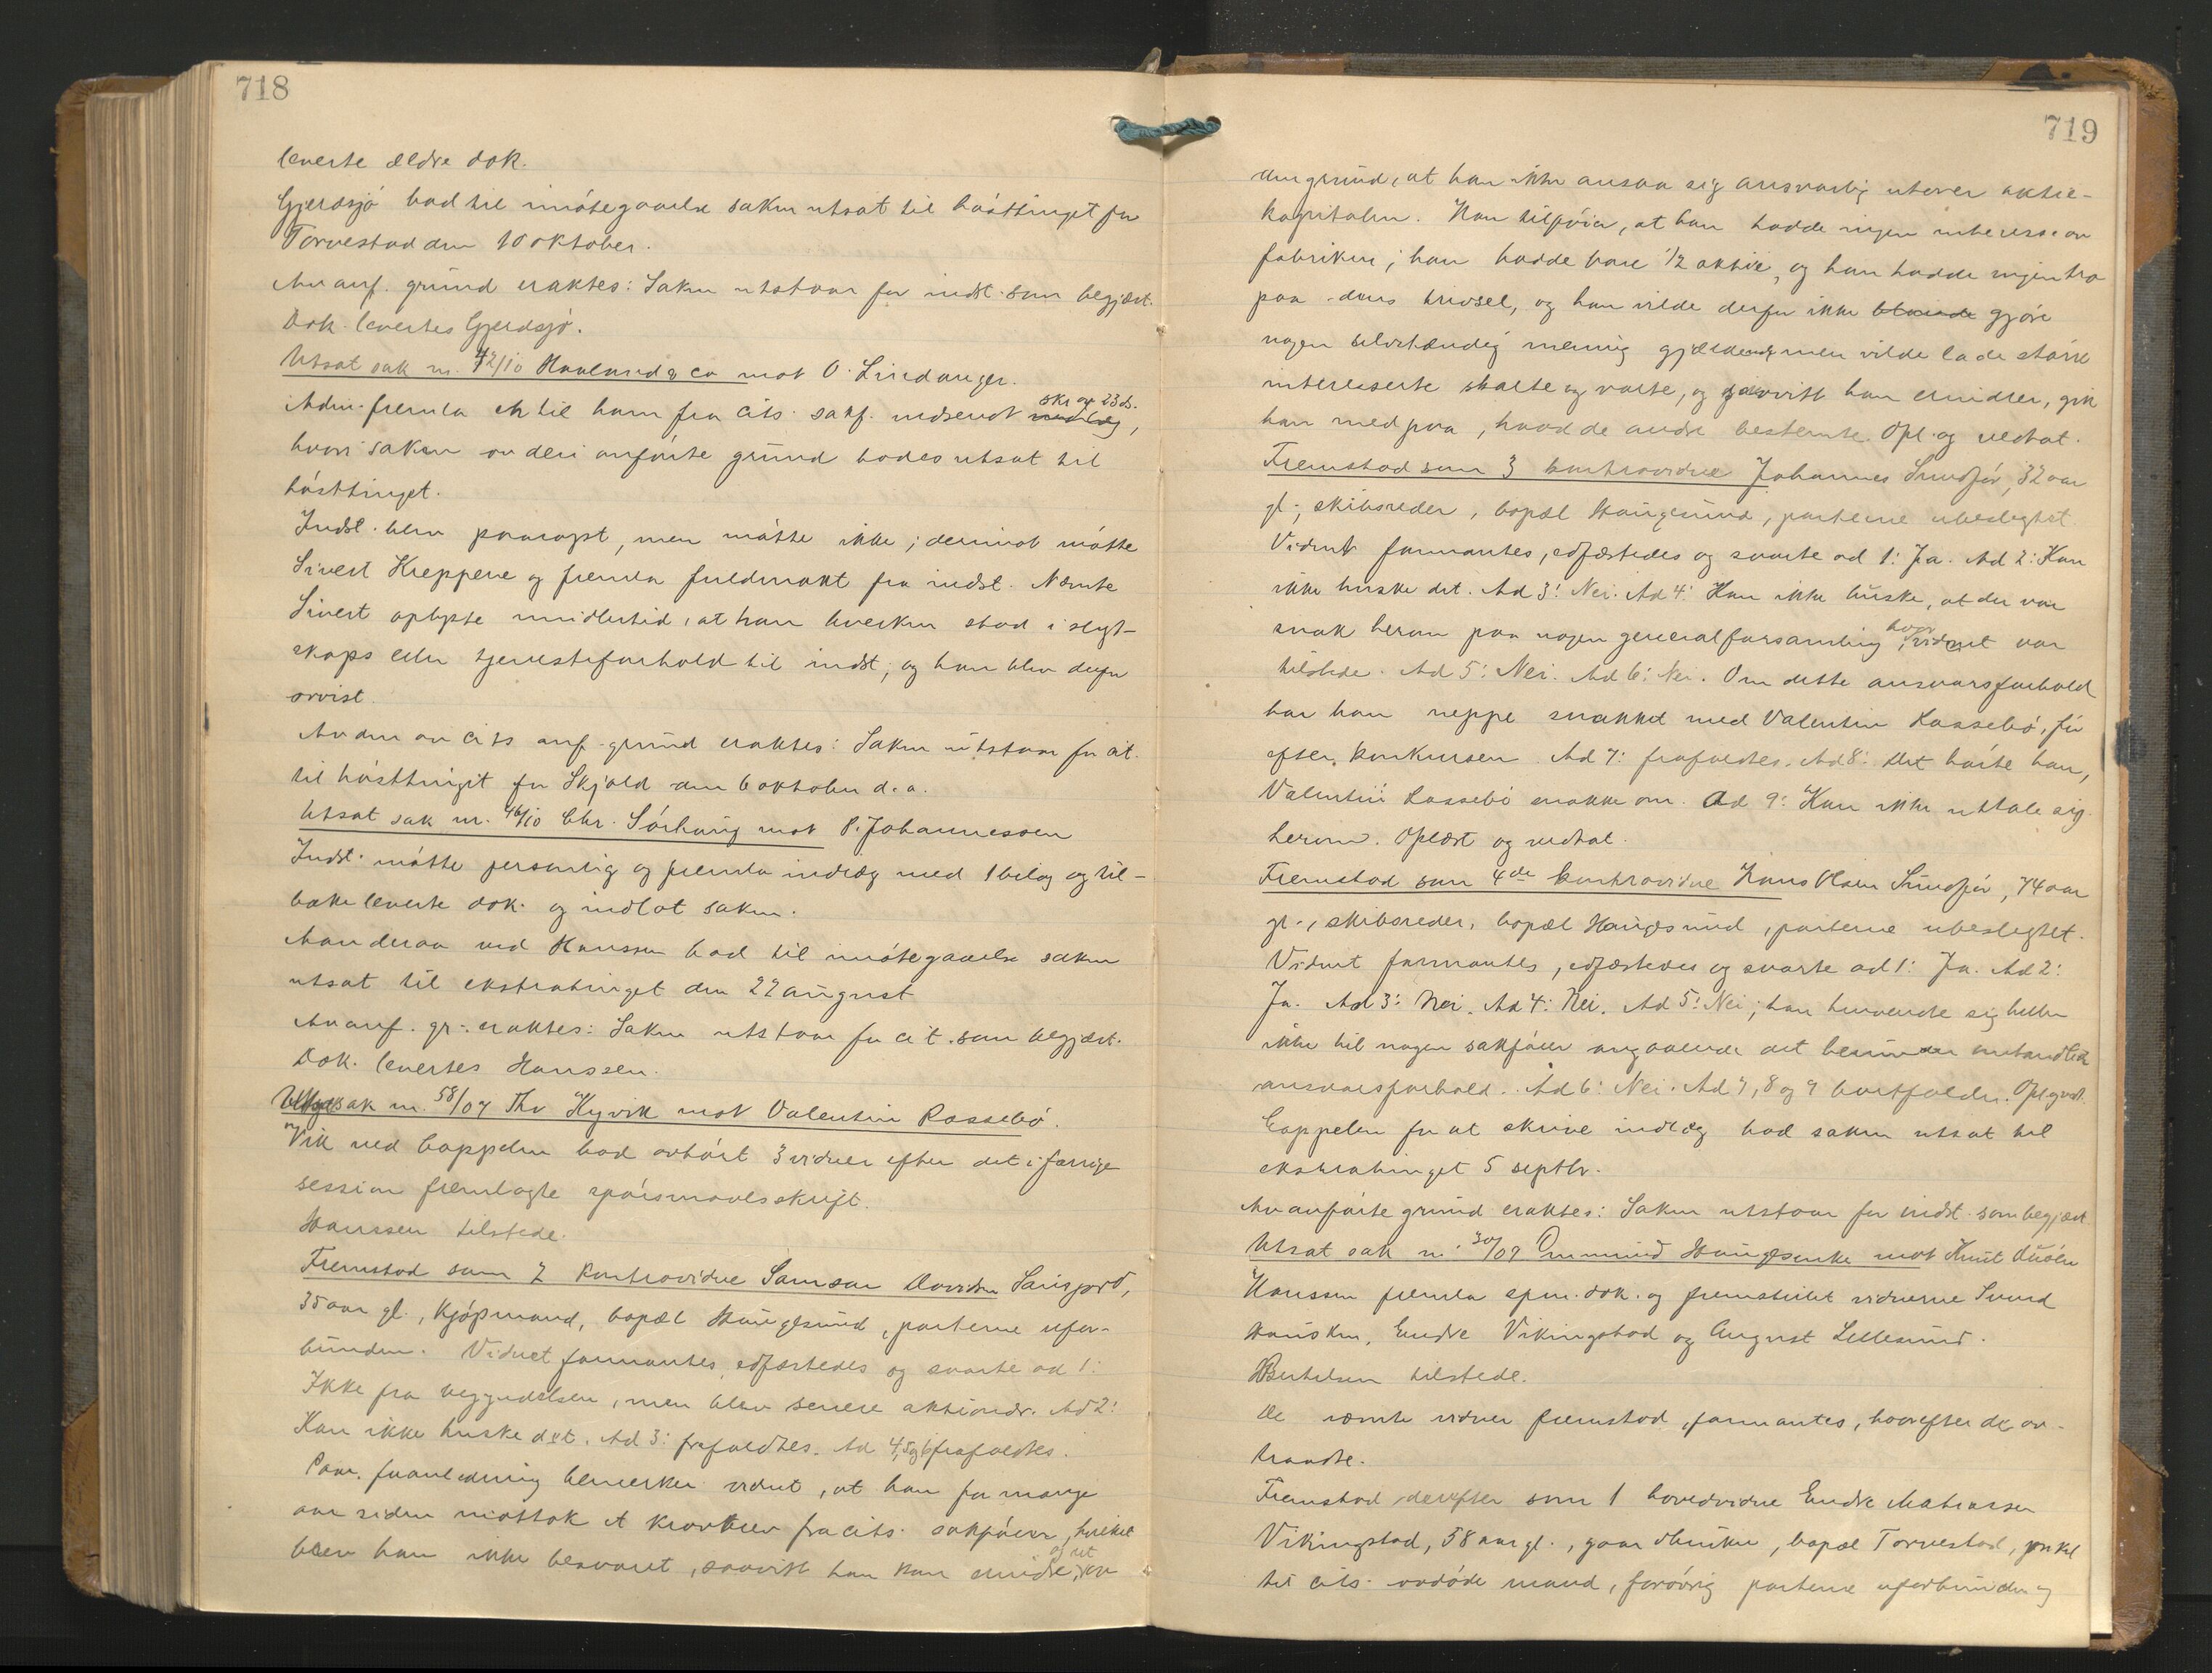 718
leverte ældre dok.
Gjerdsjö bad til imötegaaelse saken utsat til hösttinget for
Torvestad den 10 oktober.
Av anf. grund eraktes: Saken utstaar for indst. som begjært.
Dok. levertes Gjerdsjö.
Utsat sak nr. 42/10 Haaland & co mot O. Lindanger.
Adm. fremla et til ham fra cits. sakf. indsendt skr. av 23 ds.,
hvori saken av deri anförte grund bades utsat til
hösttinget.
Indst. blev paaropt, men mötte ikke; derimot mötte
Sivert Kreppene og fremla fuldmakt fra indst. Nævnte
Sivert oplyste imidlertid, at han hverken stod i slegt-
skaps eller tjenesteforhold til indst., og han blev derfor
avvist.
Av den av cits anf. grund eraktes: Saken utstaar for cit.
til hösttinget for Skjold den 6 oktober d.a.
Utsat sak nr. 46/10 Chr. Sörhaug mot P. Johannessen
Indst. mötte personlig og fremla indlæg med 1 bilag og til-
bakeleverte dok. og indlot saken.
Mandераа ved Hanssen bad til imötegaaelse saken
utsat til ekstratinget den 22 august
Av anf. gr. eraktes: Saken utstaar for cit. som begjært.
Dok. levertes Hanssen.
Utsat sak nr. 58/07 Thv Hyvik mot Valentin Rossebö.
Vik ved Cappelen bad avhört 3 vidner efter det i forrige
session fremlagte spörsmaalsskrift.
Hanssen tilstede.
Fremstod som 2 kontravidne Samson Davidsen
35 aar gl., kjöpmand, bopæl Haugesund, parterne ufor-
bunden. Vidnet formantes, edfæstedes og svarte ad 1:
Ikke fra begyndelsen, men blev senere aktionær. Ad 2:
Kan ikke huske det. Ad 3: frafaldtes. Ad 4, 5 og 6 frafaldtes.
Paa foranledning bemerker vidnet, at han for mange
aar siden mottok et kravbrev fra cits. sakförer, hvilket
brev han ikke besvaret, saavidt han kan erindre, og det av
719
den grund, at han ikke ansaa sig ansvarlig utover aktie-
kapitalen. Han tilföier, at han hadde ingen interesse av
fabriken; han hadde bare 1/2 aktie, og han hadde ingen tro
paa dens trivsel, og han vilde derfor ikke gjöre
nogen selvstændig mening gjældende men vilde la de större
interesserte skalte og valte, og saavidt han erindrer, gik
han med paa, hvad de andre bestemte. Opl. og vedtat.
Fremstod som 3 kontravidne Johannes Sundför, 32 aar
gl., skibsreder, bopæl Haugesund, parterne ubeslegtet.
Vidnet formantes, edfæstedes og svarte ad 1: Ja. Ad 2: Kan
ikke huske det. Ad 3: Nei. Ad 4: Kan ikke huske, at der var
snak herom paa nogen generalforsamling, hvor vidnet var
tilstede. Ad 5: Nei. Ad 6: Nei. Om dette ansvarsforhold
har han neppe snakket med Valentin Rossebö, för
efter konkursen. Ad 7: frafaldtes. Ad 8: Det hörte han,
Valentin Rossebö snakke om. Ad 9: Kan ikke uttale sig
herom. Oplæst og vedtat.
Fremstod som 4de kontravidne Hans Olsen Sundför, 74 aar
gl., skibsreder, bopæl Haugesund, parterne ubeslegtet.
Vidnet formantes, edfæstedes og svarte ad 1: Ja. Ad 2:
Ja. Ad 3: Nei. Ad 4: Nei. Ad 5: Nei; han henvendte sig heller
ikke til nogen sakförer angaaende det heri omhandlede
ansvarsforhold. Ad 6: Nei. Ad 7, 8 og 9 bortfalder. Opl. og vedt.
Cappelen for at skrive indlæg bad saken utsat til
ekstratinget 5 septbr.
Av anförte grund eraktes: Saken utstaar for indst. som begjært.
Utsat sak nr. 30/09 Ommund Haugesenke mot Knut Auöen
Hanssen fremla spm. dok. og fremstillet vidnerne Svend
Endre Vikingstad og August Lillesund.
Bertelsen tilstede.
De nævnte vidner fremstod, formantes, hvorefter de av-
traadte.
Fremstod derefter som 1 hovedvidne Endre Mathiassen
Vikingstad, 58 aar gl., gaardbruker, bopæl Torvestad, onkel
til cits. avdöde mand, forövrig parterne uforbunden og